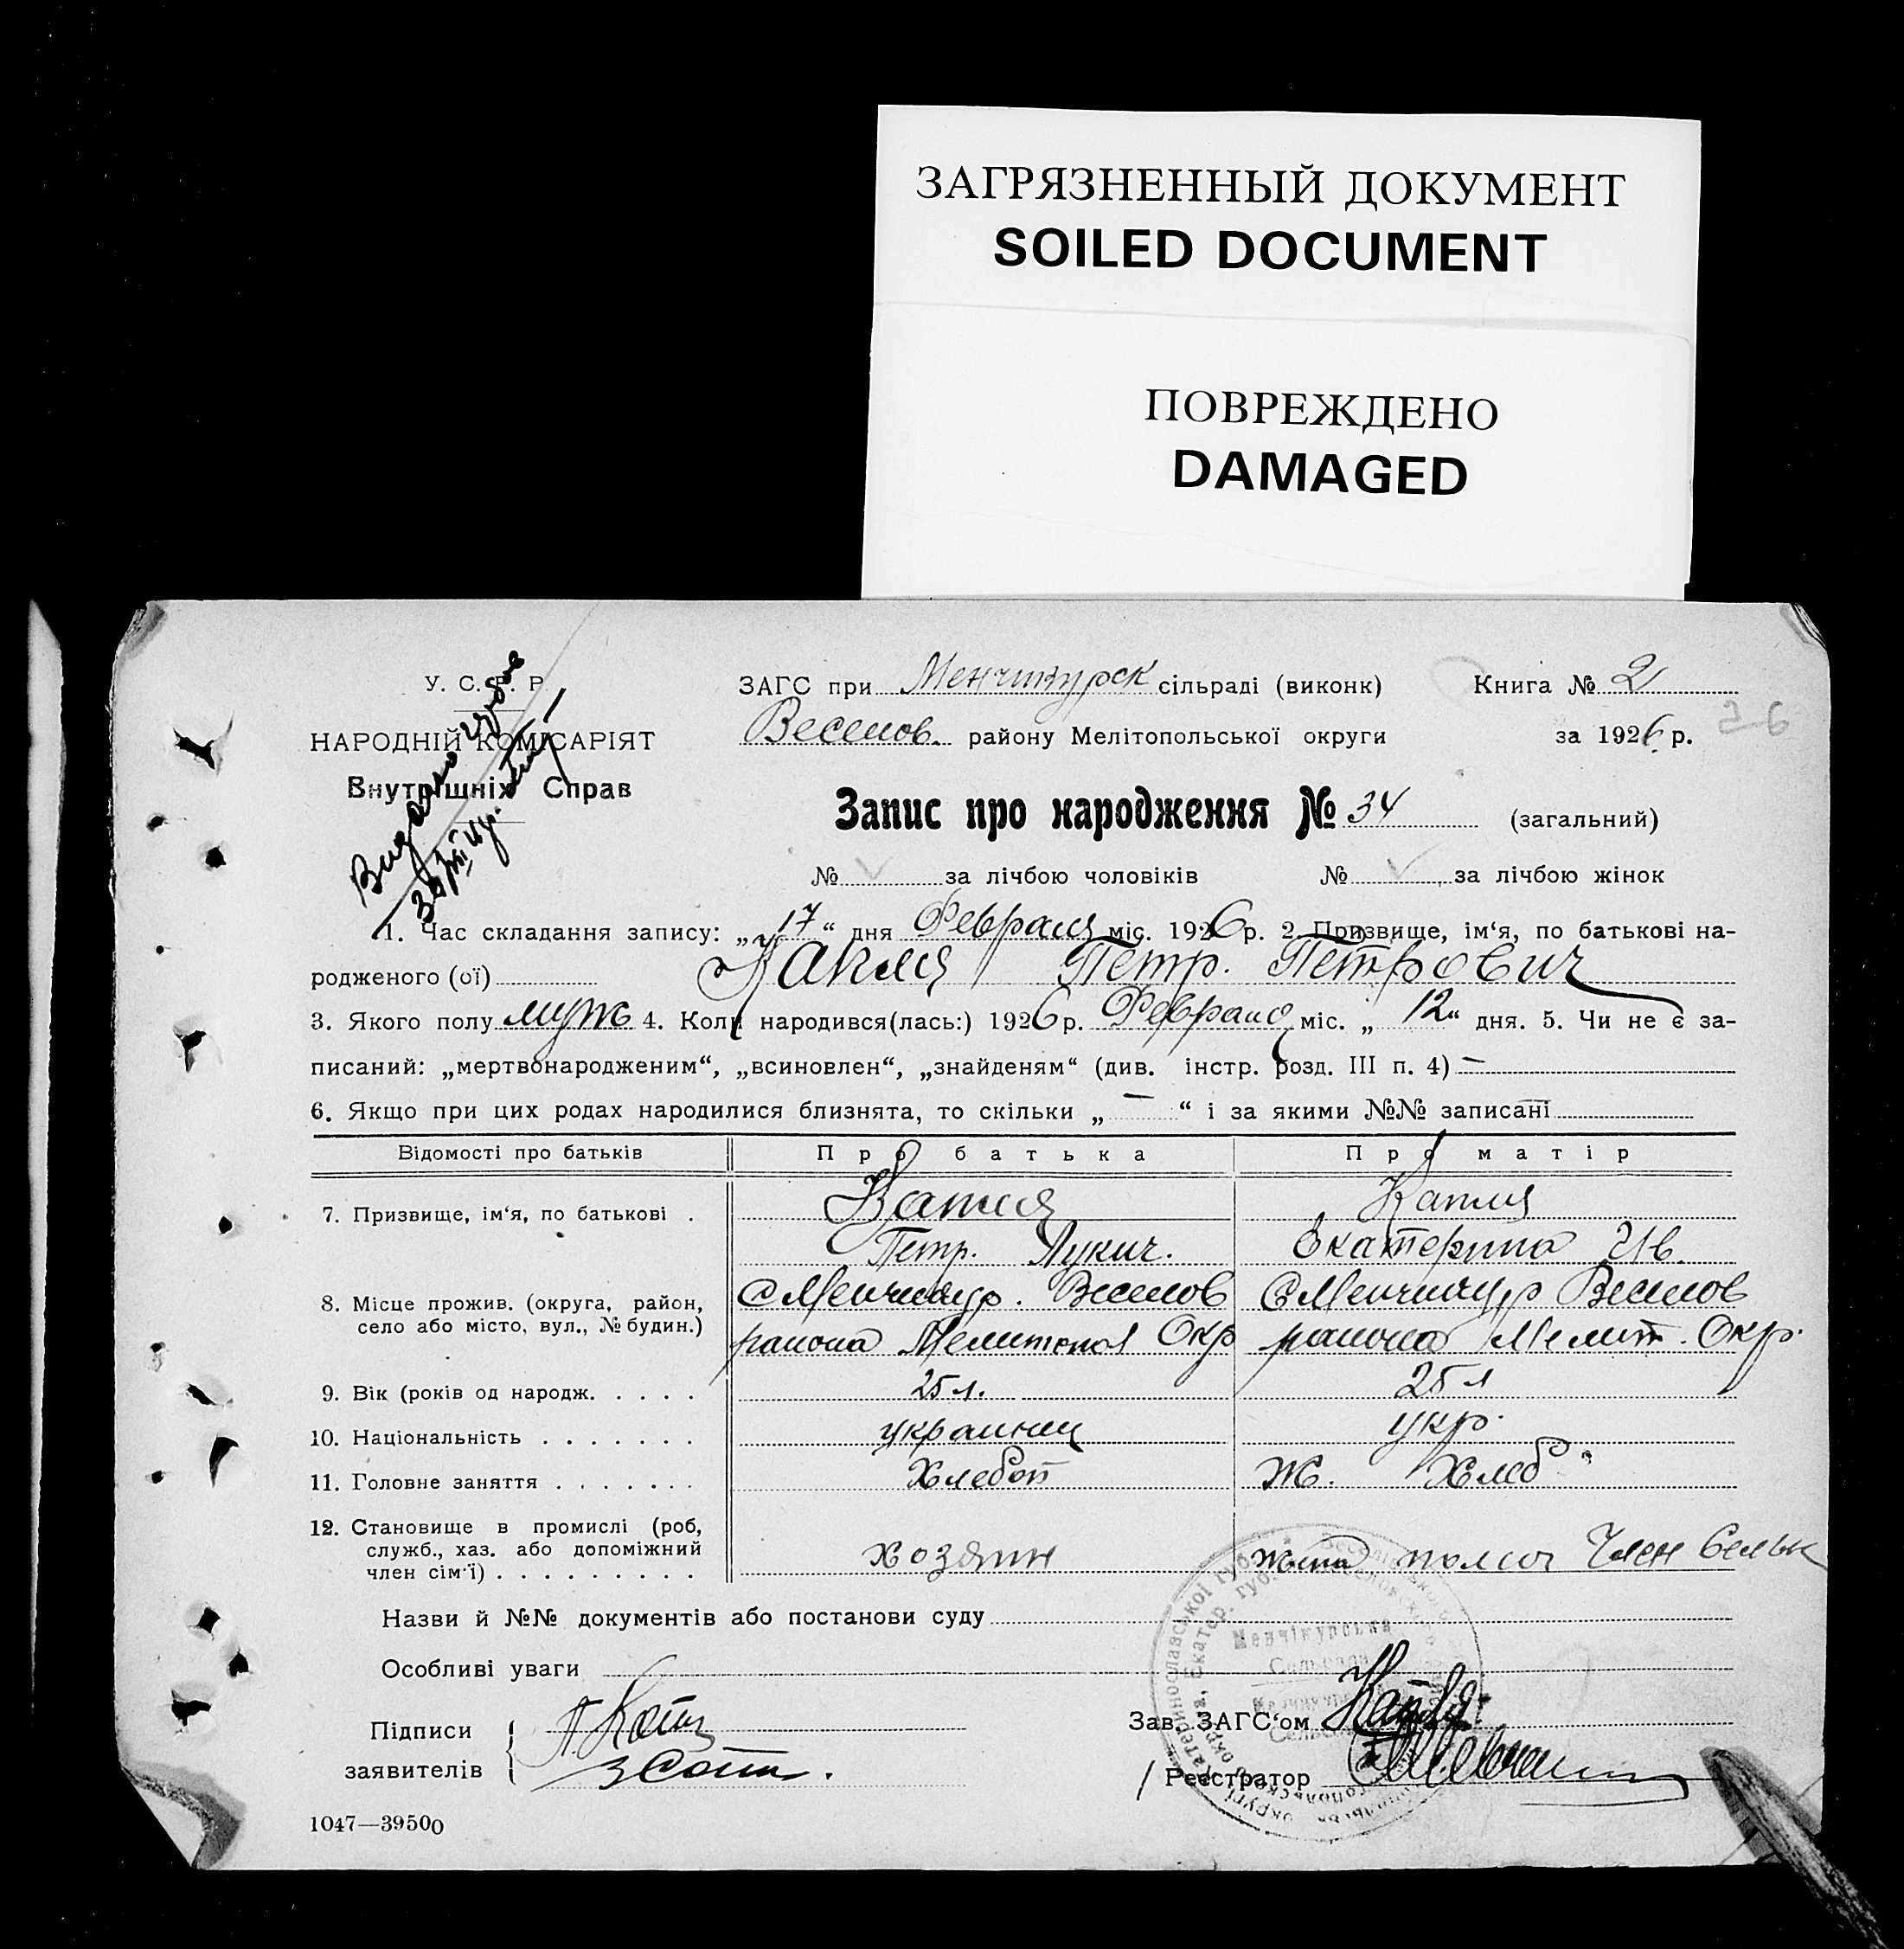 ЗАГРЯЗНЕННЫЙ ДОКУМЕНТ
SOILED DOCUMENT
ПОВРЕЖДЕНО
DAMAGED
У. С. Р. Р.
НАРОДНІЙ КОМІСАРІЯТ
Внутрішніх Справ
ЗАГС при Менчикурск сільраді (виконк) Книга № 2
Веселов. району Мелітопольської округи за 1926 р.
26
Запис про народження № 34 (загальний)
№ за лічбою чоловіків № за лічбою жінок
1. Час складання запису: „17“ дня Февраля міс. 1926 р. 2. Призвище, ім‘я, по батькові на-
родженого (ої) Капля Петр. Петрович
3. Якого полу муж 4. Коли народився(лась:) 1926 р. Февраля міс. „12“ дня. 5. Чи не є за-
писаний: „мертвонародженим“, „всиновлен“, „знайденям“ (див. інстр. розд. III п. 4) —
6. Якщо при цих родах народилися близнята, то скільки „ — “ і за якими №№ записані
Відомості про батьків Про батька Про матір
7. Призвище, ім‘я, по батькові . Капля Капля
Петр. Лукич. Екатерина Ив.
8. Місце прожив. (округа, район, село або місто, вул., № будин.) с Менчикур. Веселов с Менчикур Веселов
района Мелитопол Окр района Мелит. Окр.
9. Вік (років од народж. . . . . 25 л. 25 л
10. Національність . . . . . . . украинец укр.
11. Головне заняття . . . . . . . Хлебоп Ж. Хлеб
12. Становище в промислі (роб,
служб., хаз. або допоміжний
член сім‘ї) . . . . . . . . . хозяин жена Член
Назви й №№ документів або постанови суду
Особливі уваги
Менчікурська
Сельрада
Підписи
заявителів
Зав. ЗАГС‘ом
Реєстратор
1047—39500